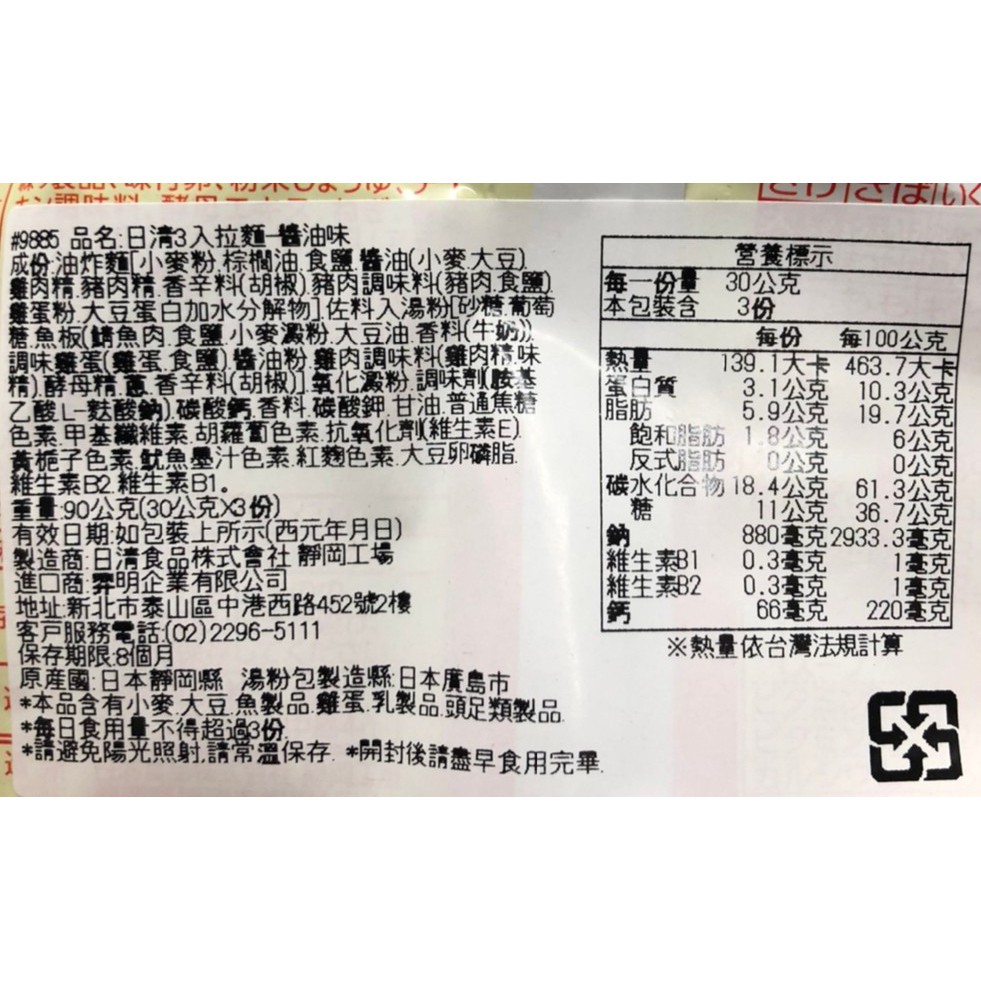 #9885 品名:日清3入拉麵-醬油味
成份:油炸麵[小麥粉.棕櫚油.食鹽.醬油(小麥.大豆).
雞肉精.豬肉精.香辛料(胡椒).豬肉調味料(豬肉.食鹽).
雞蛋粉.大豆蛋白加水分解物].佐料入湯粉[砂糖.葡萄
糖.魚板(鯖魚肉.食鹽.小麥澱粉.大豆油.香料(牛奶)).
調味雞蛋(雞蛋.食鹽).醬油粉.雞肉調味料(雞肉精.味
精).酵母精.蔥.香辛料(胡椒)].氧化澱粉.調味劑(胺基
乙酸.L-麩酸鈉).碳酸鈣.香料.碳酸鉀.甘油.普通焦糖
色素.甲基纖維素.胡蘿蔔色素.抗氧化劑(維生素E).
黃梔子色素.魷魚墨汁色素.紅麴色素.大豆卵磷脂.
維生素B2.維生素B1。
重量:90公克(30公克X3份)
有效日期:如包裝上所示(西元年月日)
製造商:日清食品株式會社 靜岡工場
進口商:霈明企業有限公司
地址:新北市泰山區中港西路452號2樓
客戶服務電話:(02)2296-5111
保存期限:8個月
原產國:日本靜岡縣 湯粉包製造縣:日本廣島市
*本品含有小麥.大豆.魚製品.雞蛋.乳製品.頭足類製品.
*每日食用量不得超過3份.
*請避免陽光照射,請常溫保存. *開封後請盡早食用完畢.
營養標示
每一份量 30公克
本包裝含 3份
每份 每100公克
熱量 139.1大卡 463.7大卡
蛋白質 3.1公克 10.3公克
脂肪 5.9公克 19.7公克
飽和脂肪 1.8公克 6公克
反式脂肪 0公克 0公克
碳水化合物 18.4公克 61.3公克
糖 11公克 36.7公克
鈉 880毫克 2933.3毫克
維生素B1 0.3毫克 1毫克
維生素B2 0.3毫克 1毫克
鈣 66毫克 220毫克
※熱量依台灣法規計算